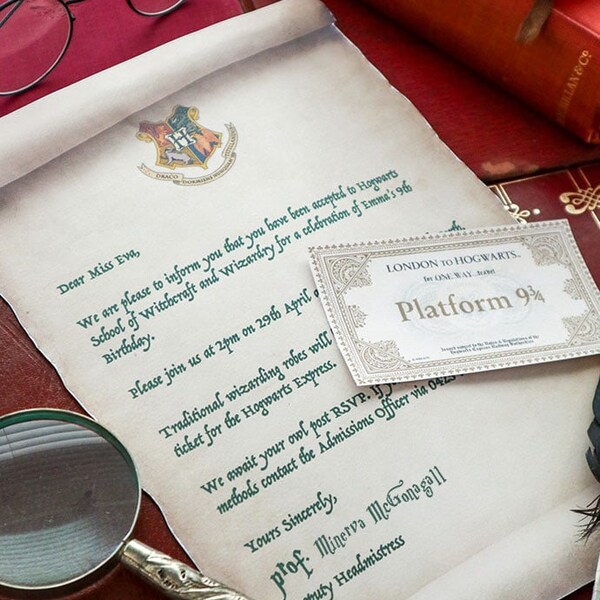 DRACO DORMIENS
Dear Miss Eva,
We are pleased to inform you that you have been accepted to Hogwarts
School of Witchcraft and Wizardry for a celebration of Emma's 9th
Birthday.
Please join us at 2pm on 29th April
Traditional wizarding robes will
ticket for the Hogwarts Express.
We await your owl post RSVP. If
methods contact the Admissions Officer via 042
Yours Sincerely,
prof. Minerva McGonagall
puty Headmistress
LONDON to HOGWARTS
for ONE WAY travel
Platform 9¾
MILLAN & CO.